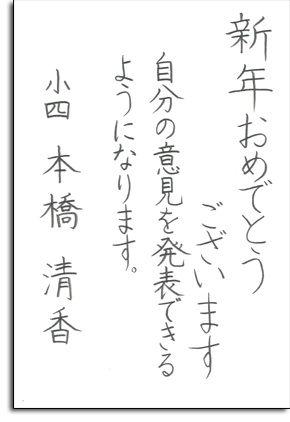 新年おめでとう
ございます
自分の意見を発表できる
ようになります。
小四 本橋 清香